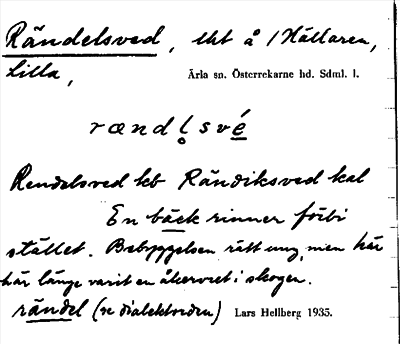 Rändelsved, tkt å /Hällaren,
Lilla, Ärla sn. Österrekarne hd. Sdml. l.
rændl̥své
Rendelsved hb Rändiksved kal
En bäck rinner förbi
stället. Bebyggelsen rätt ung, men här
har länge varit en åkervret i skogen.
rändel (se dialektorden) Lars Hellberg 1935.